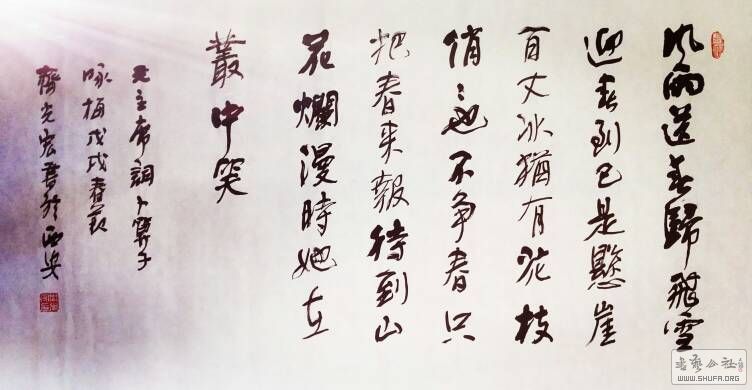 风雨送春歸飛雪
迎春到已是懸崖
百丈冰猶有花枝
俏〻也不争春只
把春来報待到山
花爛漫時她在
叢中笑
毛主席詞卜算子
咏梅戊戌春
齊光宏書於西安
書藝公社
WWW.SHUFA.ORG